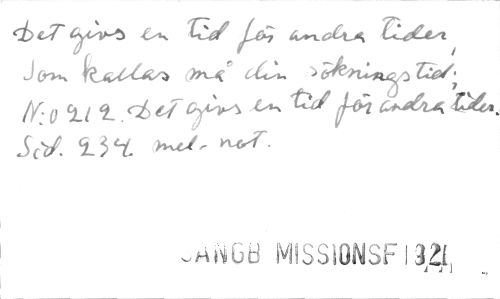 Det givs en tid för andra tider,
som kallas må din sökningstid;
N:o 212. Det givs en tid för andra tider.
Sid. 234. mel-not.
SANGB MISSIONSF 1921